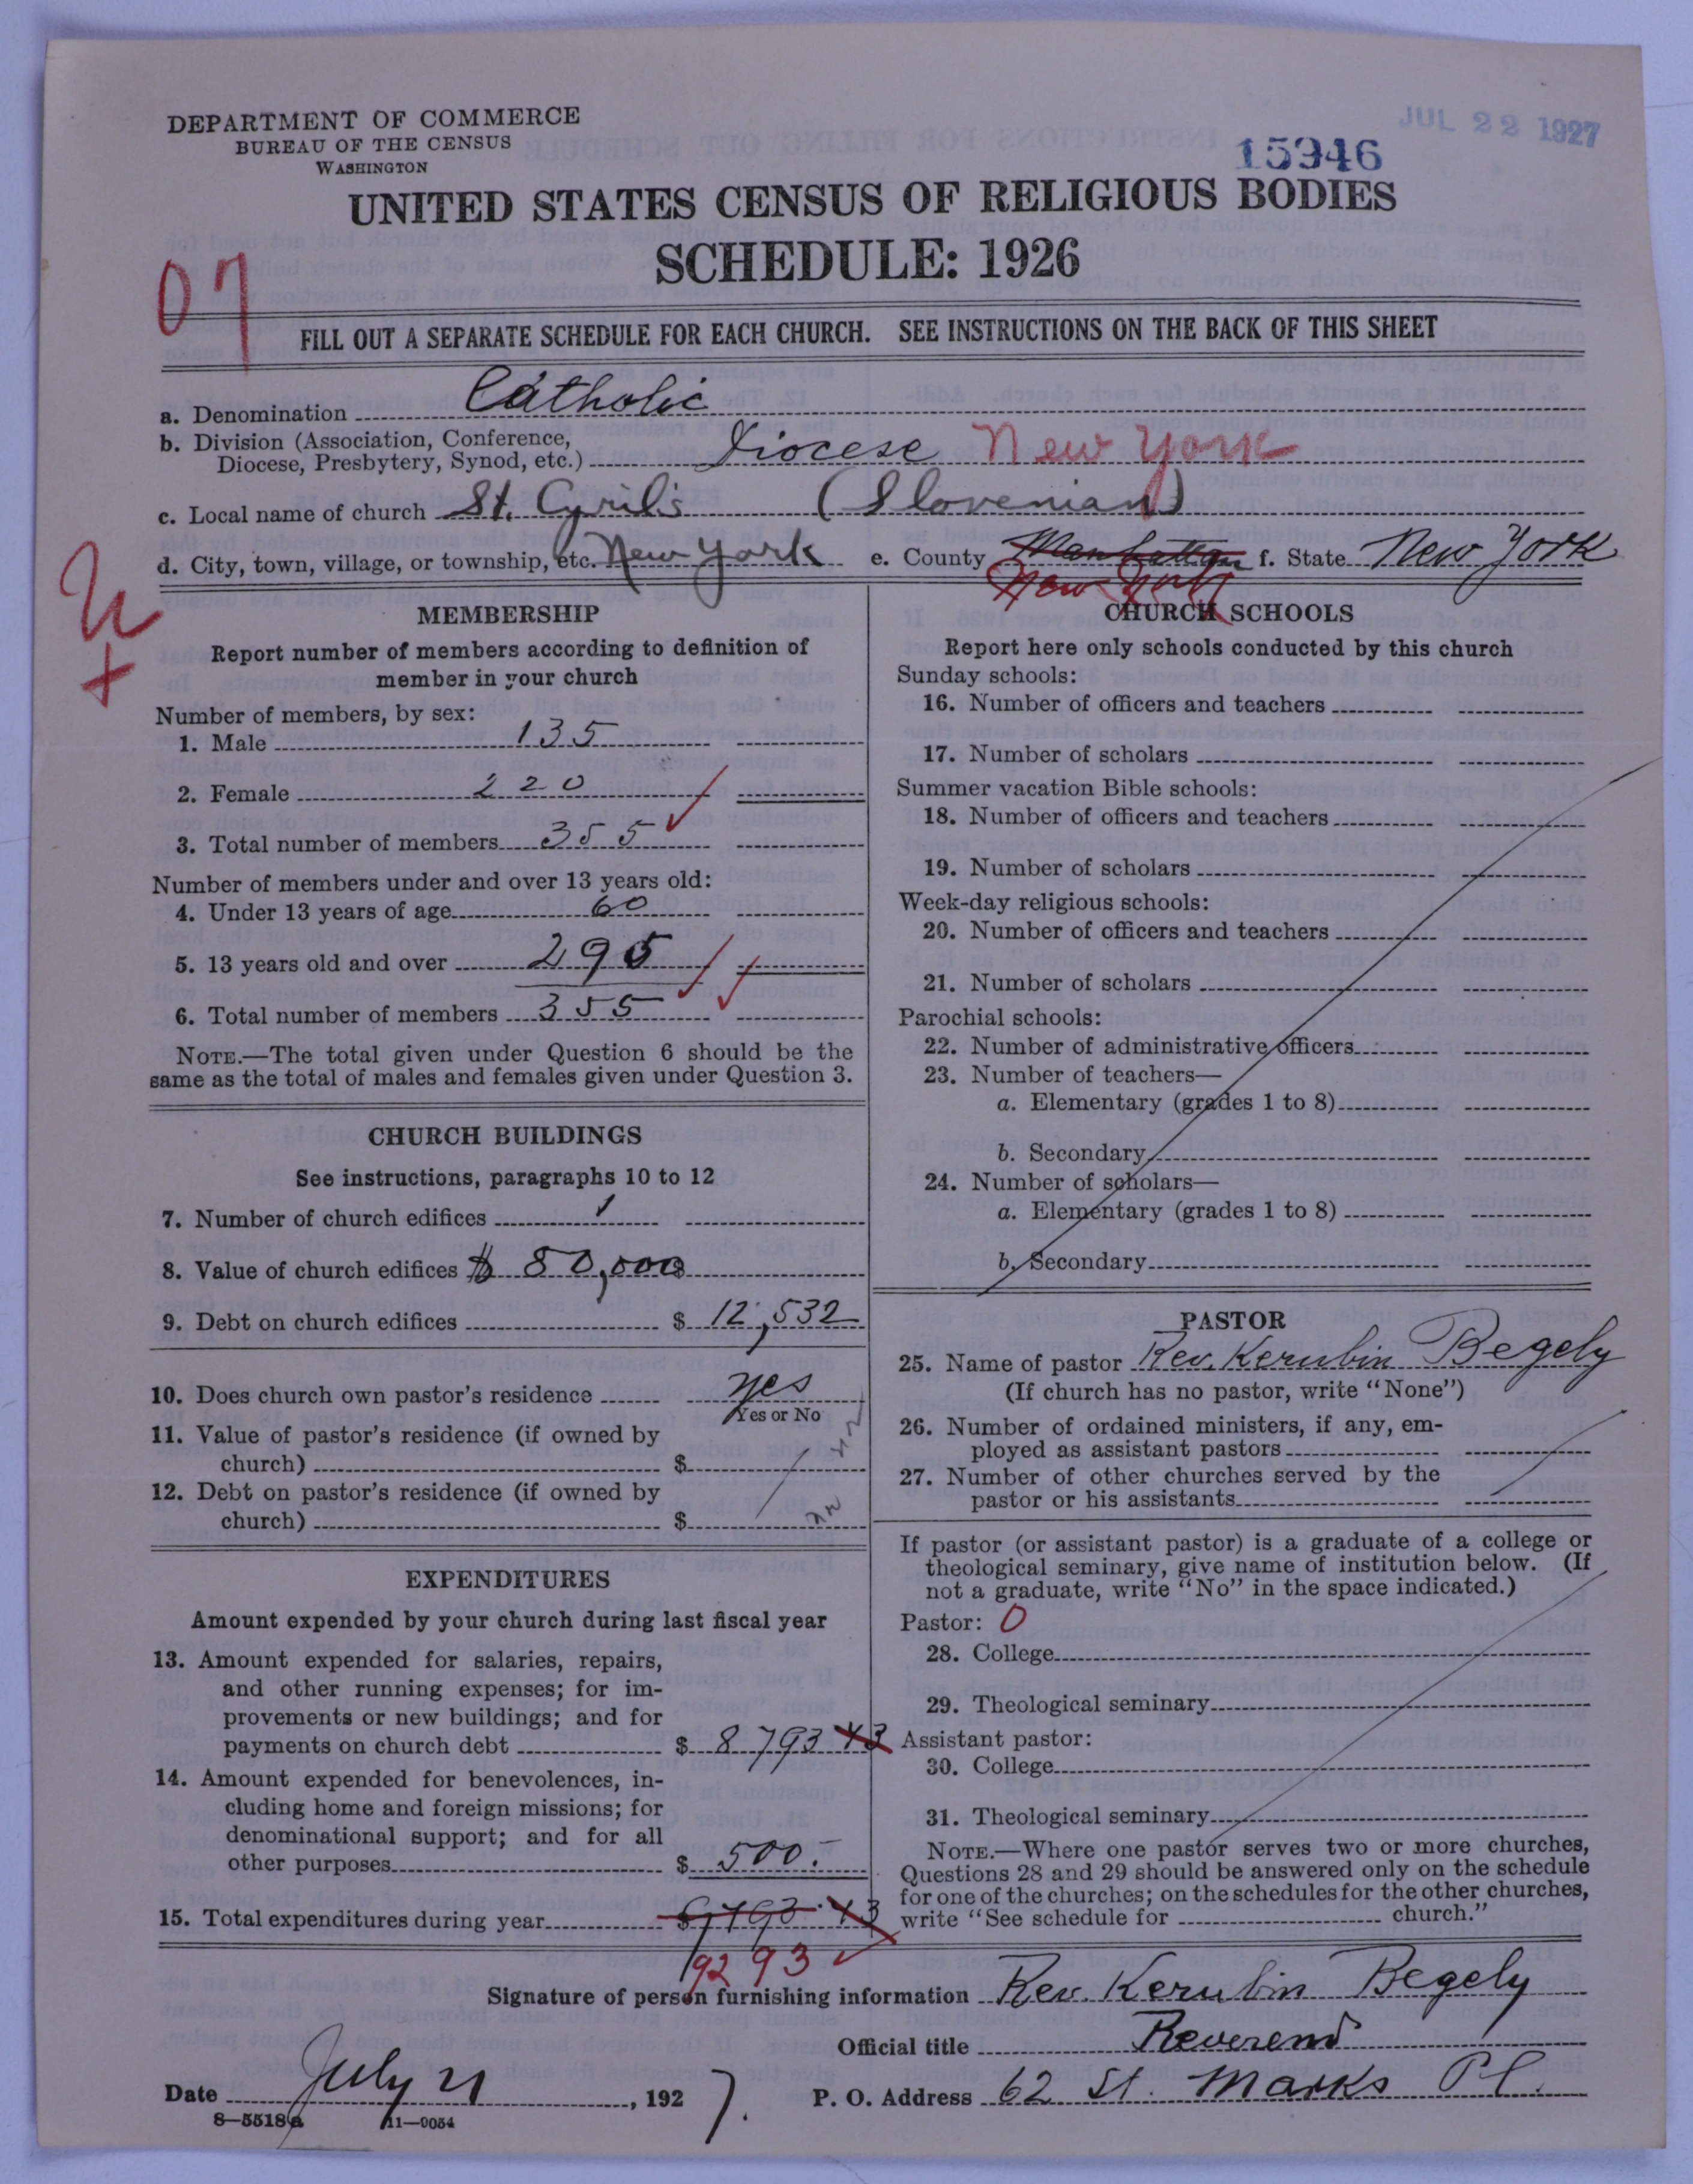 JUL 22 1927
15946
DEPARTMENT OF COMMERCE
BUREAU OF THE CENSUS
WASHINGTON
UNITED STATES CENSUS OF RELIGIOUS BODIES
SCHEDULE: 1926
07
FILL OUT A SEPARATE SCHEDULE FOR EACH CHURCH. SEE INSTRUCTIONS ON THE BACK OF THIS SHEET
a. Denomination Catholic
b. Division (Association, Conference,
Diocese, Presbytery, Synod, etc.) Diocese New York
c. Local name of church St. Cyril's (Slovenian)
d. City, town, village, or township, etc. New York e. County Manhattan New York f. State New York
MEMBERSHIP
Report number of members according to definition of
member in your church
Number of members, by sex:
1. Male 135
2. Female 220
3. Total number of members 355
Number of members under and over 13 years old:
4. Under 13 years of age 60
5. 13 years old and over 295
6. Total number of members 355
NOTE.—The total given under Question 6 should be the
same as the total of males and females given under Question 3.
CHURCH BUILDINGS
See instructions, paragraphs 10 to 12
7. Number of church edifices 1
8. Value of church edifices $ 80,000
9. Debt on church edifices $ 12,532
10. Does church own pastor's residence yes
Yes or No
11. Value of pastor's residence (if owned by
church) $
12. Debt on pastor's residence (if owned by
church) $
EXPENDITURES
Amount expended by your church during last fiscal year
13. Amount expended for salaries, repairs,
and other running expenses; for im-
provements or new buildings; and for
payments on church debt $ 8793 43
14. Amount expended for benevolences, in-
cluding home and foreign missions; for
denominational support; and for all
other purposes $ 500.-
15. Total expenditures during year
9293
CHURCH SCHOOLS
Report here only schools conducted by this church
Sunday schools:
16. Number of officers and teachers
17. Number of scholars
Summer vacation Bible schools:
18. Number of officers and teachers
19. Number of scholars
Week-day religious schools:
20. Number of officers and teachers
21. Number of scholars
Parochial schools:
22. Number of administrative officers
23. Number of teachers—
a. Elementary (grades 1 to 8)
b. Secondary
24. Number of scholars—
a. Elementary (grades 1 to 8)
b. Secondary
PASTOR
25. Name of pastor Rev. Kerubin Begely
(If church has no pastor, write "None")
26. Number of ordained ministers, if any, em-
ployed as assistant pastors
27. Number of other churches served by the
pastor or his assistants
If pastor (or assistant pastor) is a graduate of a college or
theological seminary, give name of institution below. (If
not a graduate, write "No" in the space indicated.)
Pastor: 0
28. College
29. Theological seminary
Assistant pastor:
30. College
31. Theological seminary
NOTE.—Where one pastor serves two or more churches,
Questions 28 and 29 should be answered only on the schedule
for one of the churches; on the schedules for the other churches,
write "See schedule for church."
Signature of person furnishing information Rev. Kerubin Begely
Official title Reverend
Date July 21, 1927. P. O. Address 62 St. Marks Pl.
8—5518a 11—9054